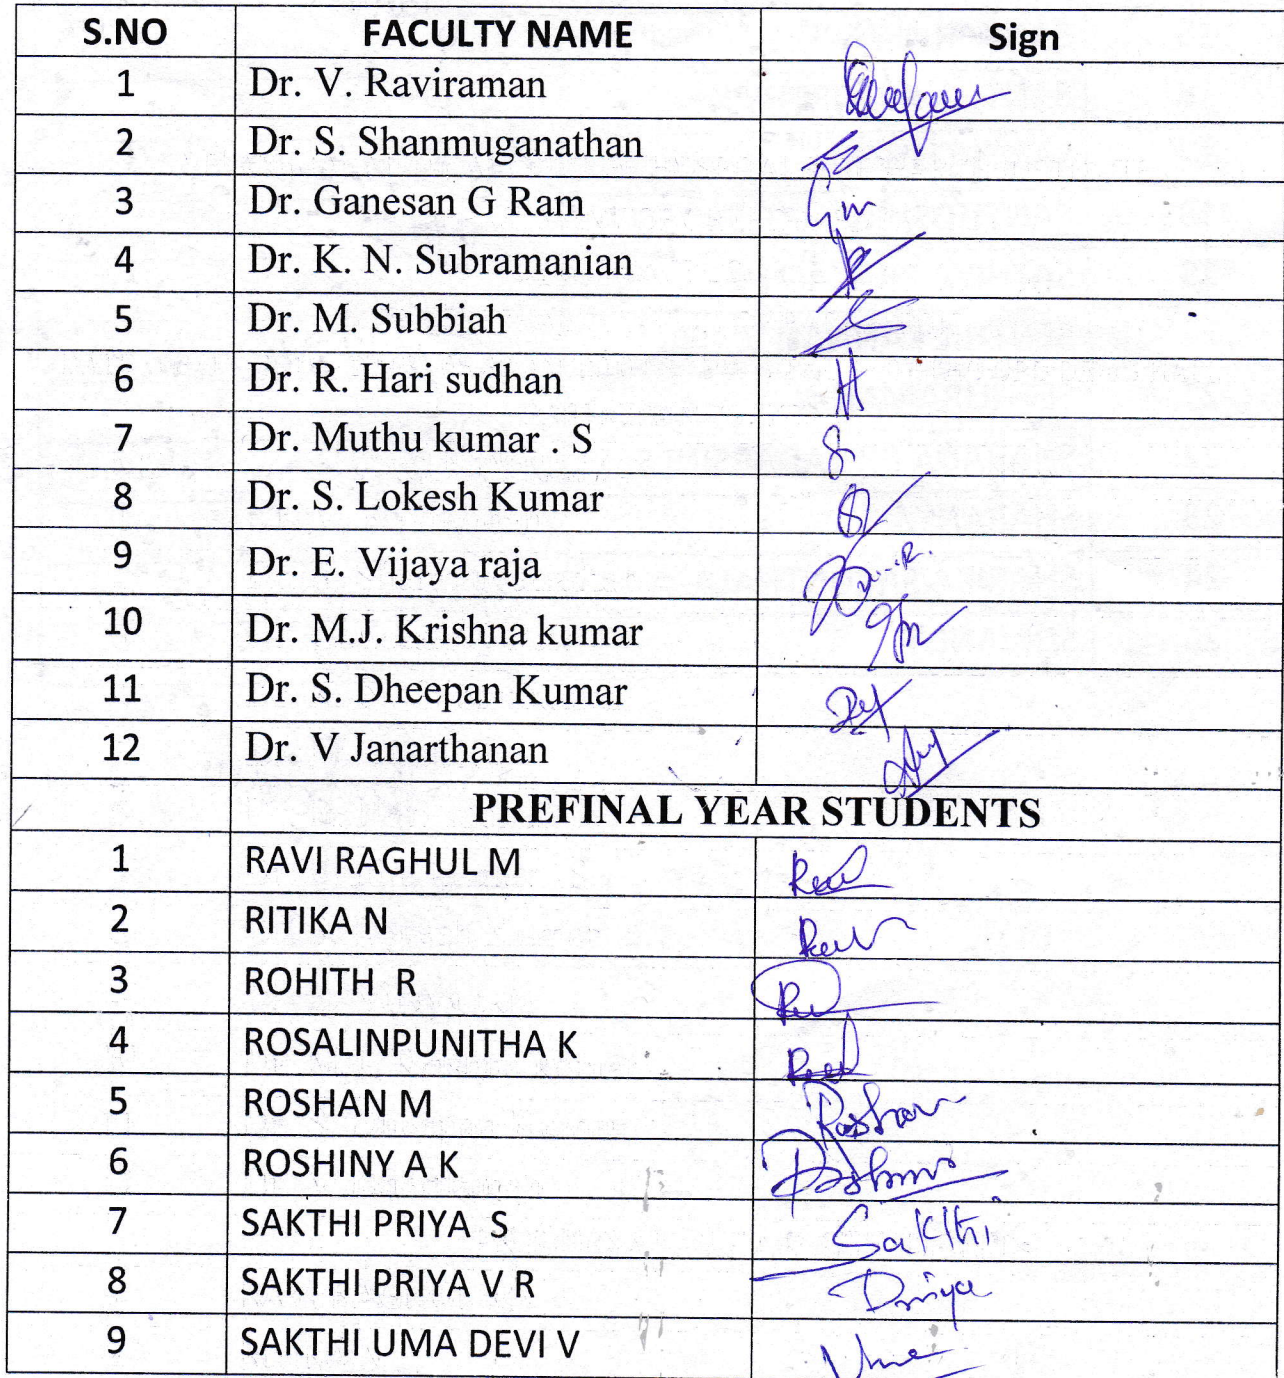 S.NO FACULTY NAME Sign
1 Dr. V. Raviraman
2 Dr. S. Shanmuganathan
3 Dr. Ganesan G Ram
4 Dr. K. N. Subramanian
5 Dr. M. Subbiah
6 Dr. R. Hari sudhan H
7 Dr. Muthu kumar . S
8 Dr. S. Lokesh Kumar
9 Dr. E. Vijaya raja
10 Dr. M.J. Krishna kumar
11 Dr. S. Dheepan Kumar
12 Dr. V Janarthanan
PREFINAL YEAR STUDENTS
1 RAVI RAGHUL M
2 RITIKA N
3 ROHITH R
4 ROSALINPUNITHA K
5 ROSHAN M Roshan
6 ROSHINY A K
7 SAKTHI PRIYA S Sakthi
8 SAKTHI PRIYA V R Priya
9 SAKTHI UMA DEVI V Uma